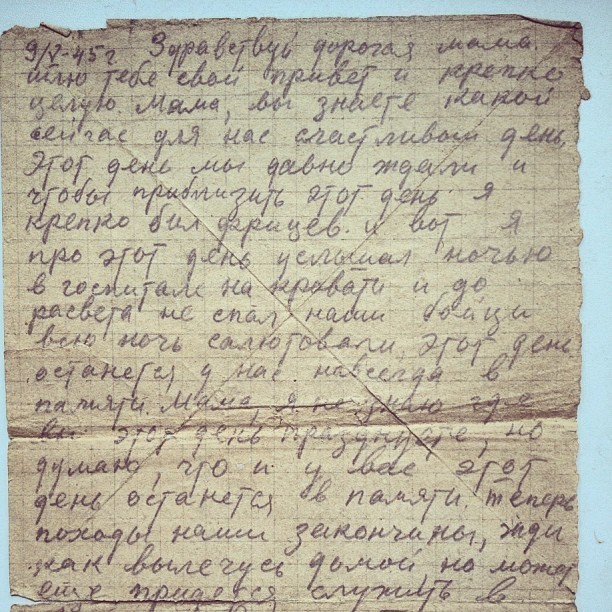 9/V-45 г Здравствуй дорогая мама.
шлю тебе свой привет и крепко
целую. Мама, вы знаете какой
сейчас для нас счастливый день,
Этот день мы давно ждали и
чтобы приблизить этот день я
крепко бил фрицев. и вот я
про этот день услышал ночью
в госпитале на кровати и до
расвета не спал наши бойци
всю ночь салютовали, этот день
останется у нас навсегда в
памяти. Мама, я не знаю где
вы этот день празднуете, но
думаю, что и у вас этот
день останется в памяти. теперь
походы наши закончины, жди
как вылечусь домой но может
еще придется служить в